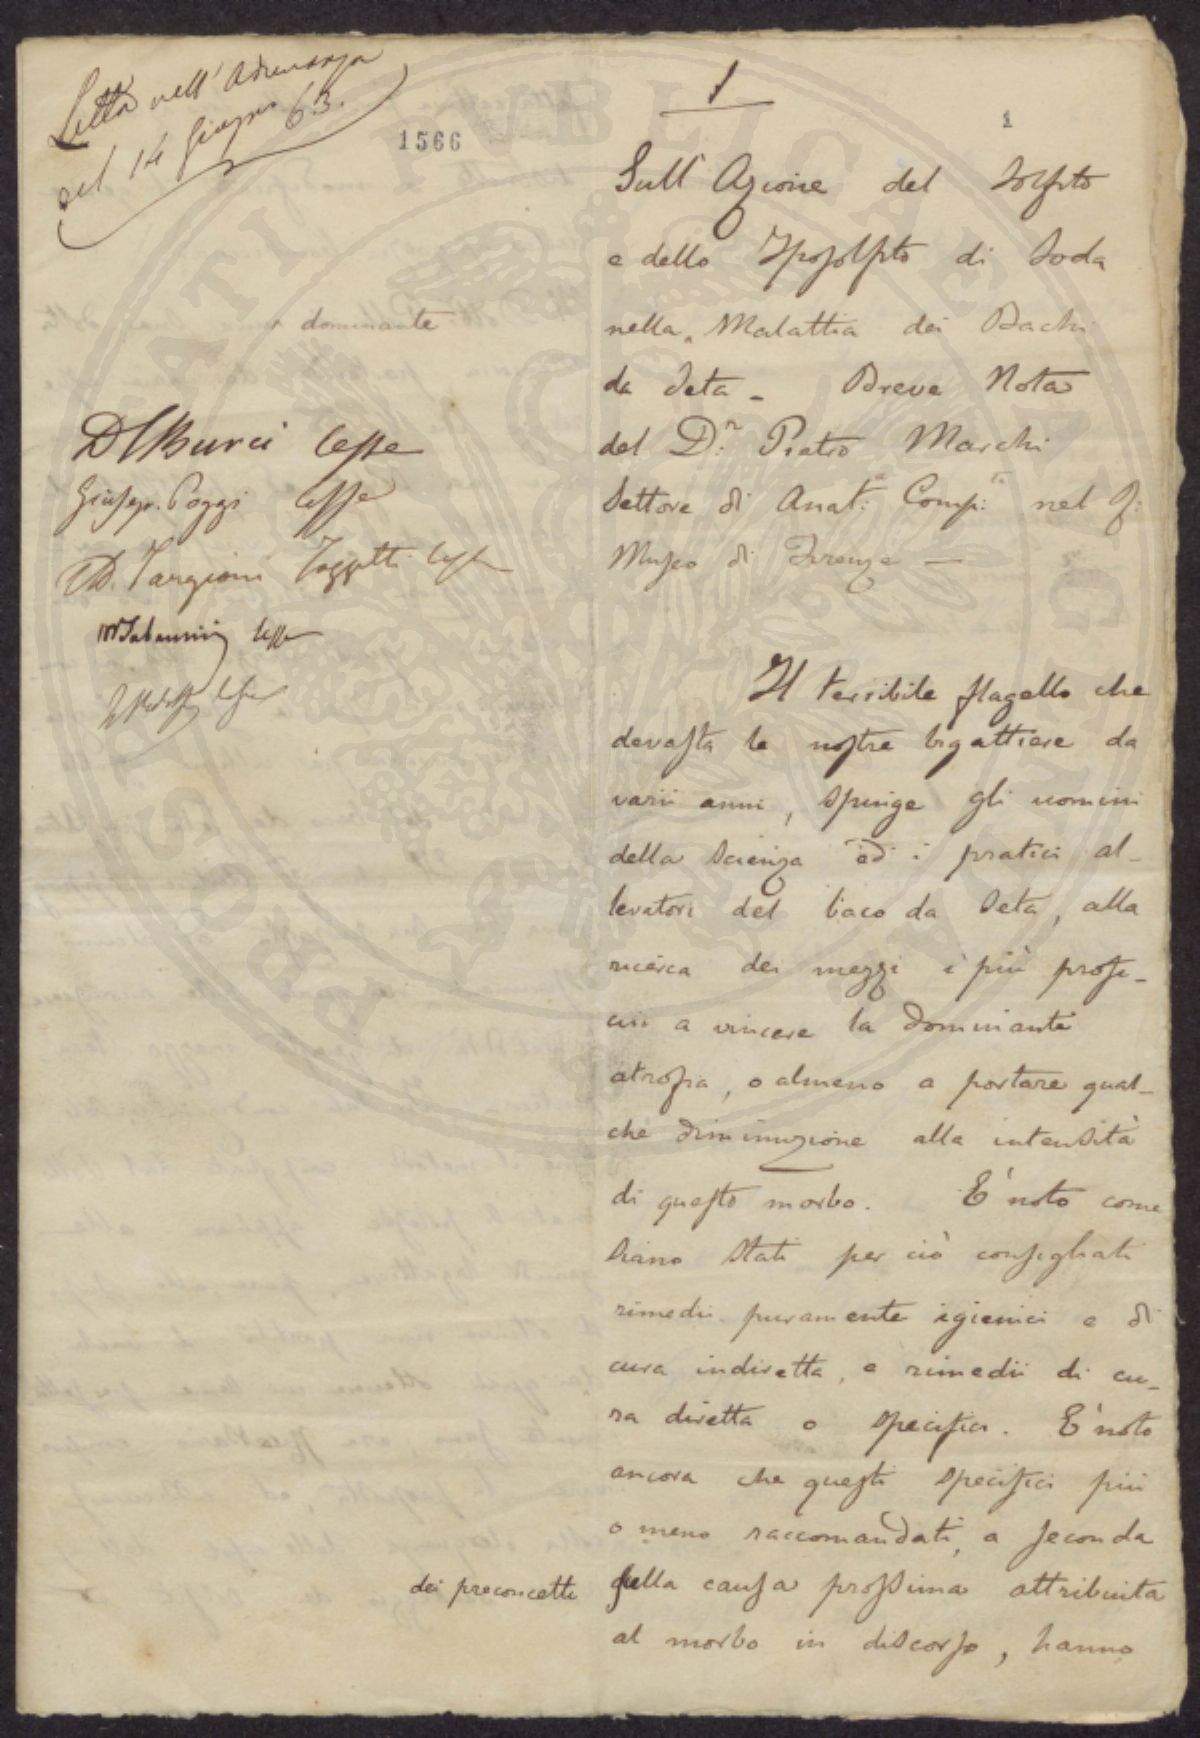 Letta nell'Adunanza
del 14 Giugno 63.
1566
1
1
Sull'Azione del Solfito
e dello Iposolfito di Soda
dominante
nella Malattia dei Bachi
da Seta - Breve Nota
del D.r Pietro Marchi
Settore di Anat.a Comp.ta nel R.
Museo di Firenze —
Burci lesse
Giusep. Poggi lesse
Ad. Targioni Tozzetti lesse
lesse
Il terribile flagello che
devasta le nostre bigattiere da
varii anni, spinge gli uomini
della Scienza ed i pratici al-
levatori del baco da Seta, alla
ricerca dei mezzi i più profi-
cui a vincere la dominante
atrofia, o almeno a portare qual-
che diminuzione alla intensità
di questo morbo. E' noto come
siano stati per ciò consigliati
rimedii puramente igienici e di
cura indiretta, e rimedii di cu-
ra diretta o specifici. E' noto
ancora che questi specifici più
o meno raccomandati, a seconda
dei preconcetti sulla causa prossima attribuita
al morbo in discorso, hanno
PROSPERITATI PUBLICAE AUGENDAE